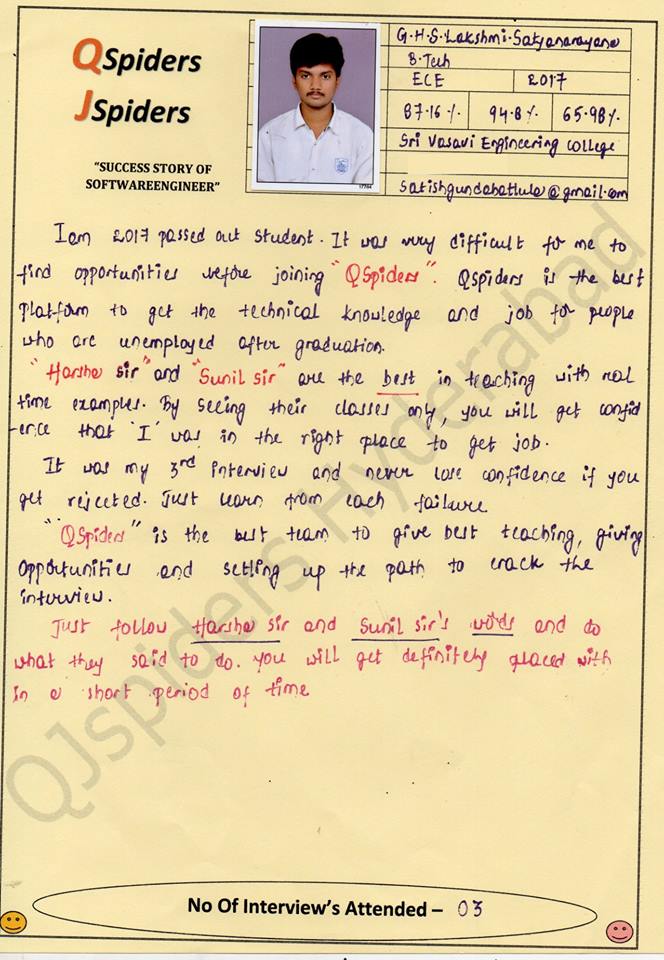 QSpiders
JSpiders
"SUCCESS STORY OF
SOFTWAREENGINEER"
G.H.S.Lakshmi.Satyanarayana
B.Tech
ECE 2017
87.16% 94.8% 65.98%
Sri Vasavi Engineering College
satishgundabattula@gmail.com
17784
I am 2017 passed out student. It was very difficult for me to
find opportunities before joining "QSpiders". QSpiders is the best
platform to get the technical knowledge and job for people
who are unemployed after graduation.
"Harsha sir" and "Sunil sir" are the best in teaching with real
time examples. By seeing their classes only, you will get confid
-ence that 'I' was in the right place to get job.
It was my 3rd interview and never lose confidence if you
get rejected. Just learn from each failure.
"QSpiders" is the best team to give best teaching, giving
opportunities and setling up the path to crack the
interview.
Just follow Harsha sir and Sunil sir's words and do
what they said to do. You will get definitely placed with
in a short period of time
QJspiders Hyderabad
No Of Interview's Attended – 03